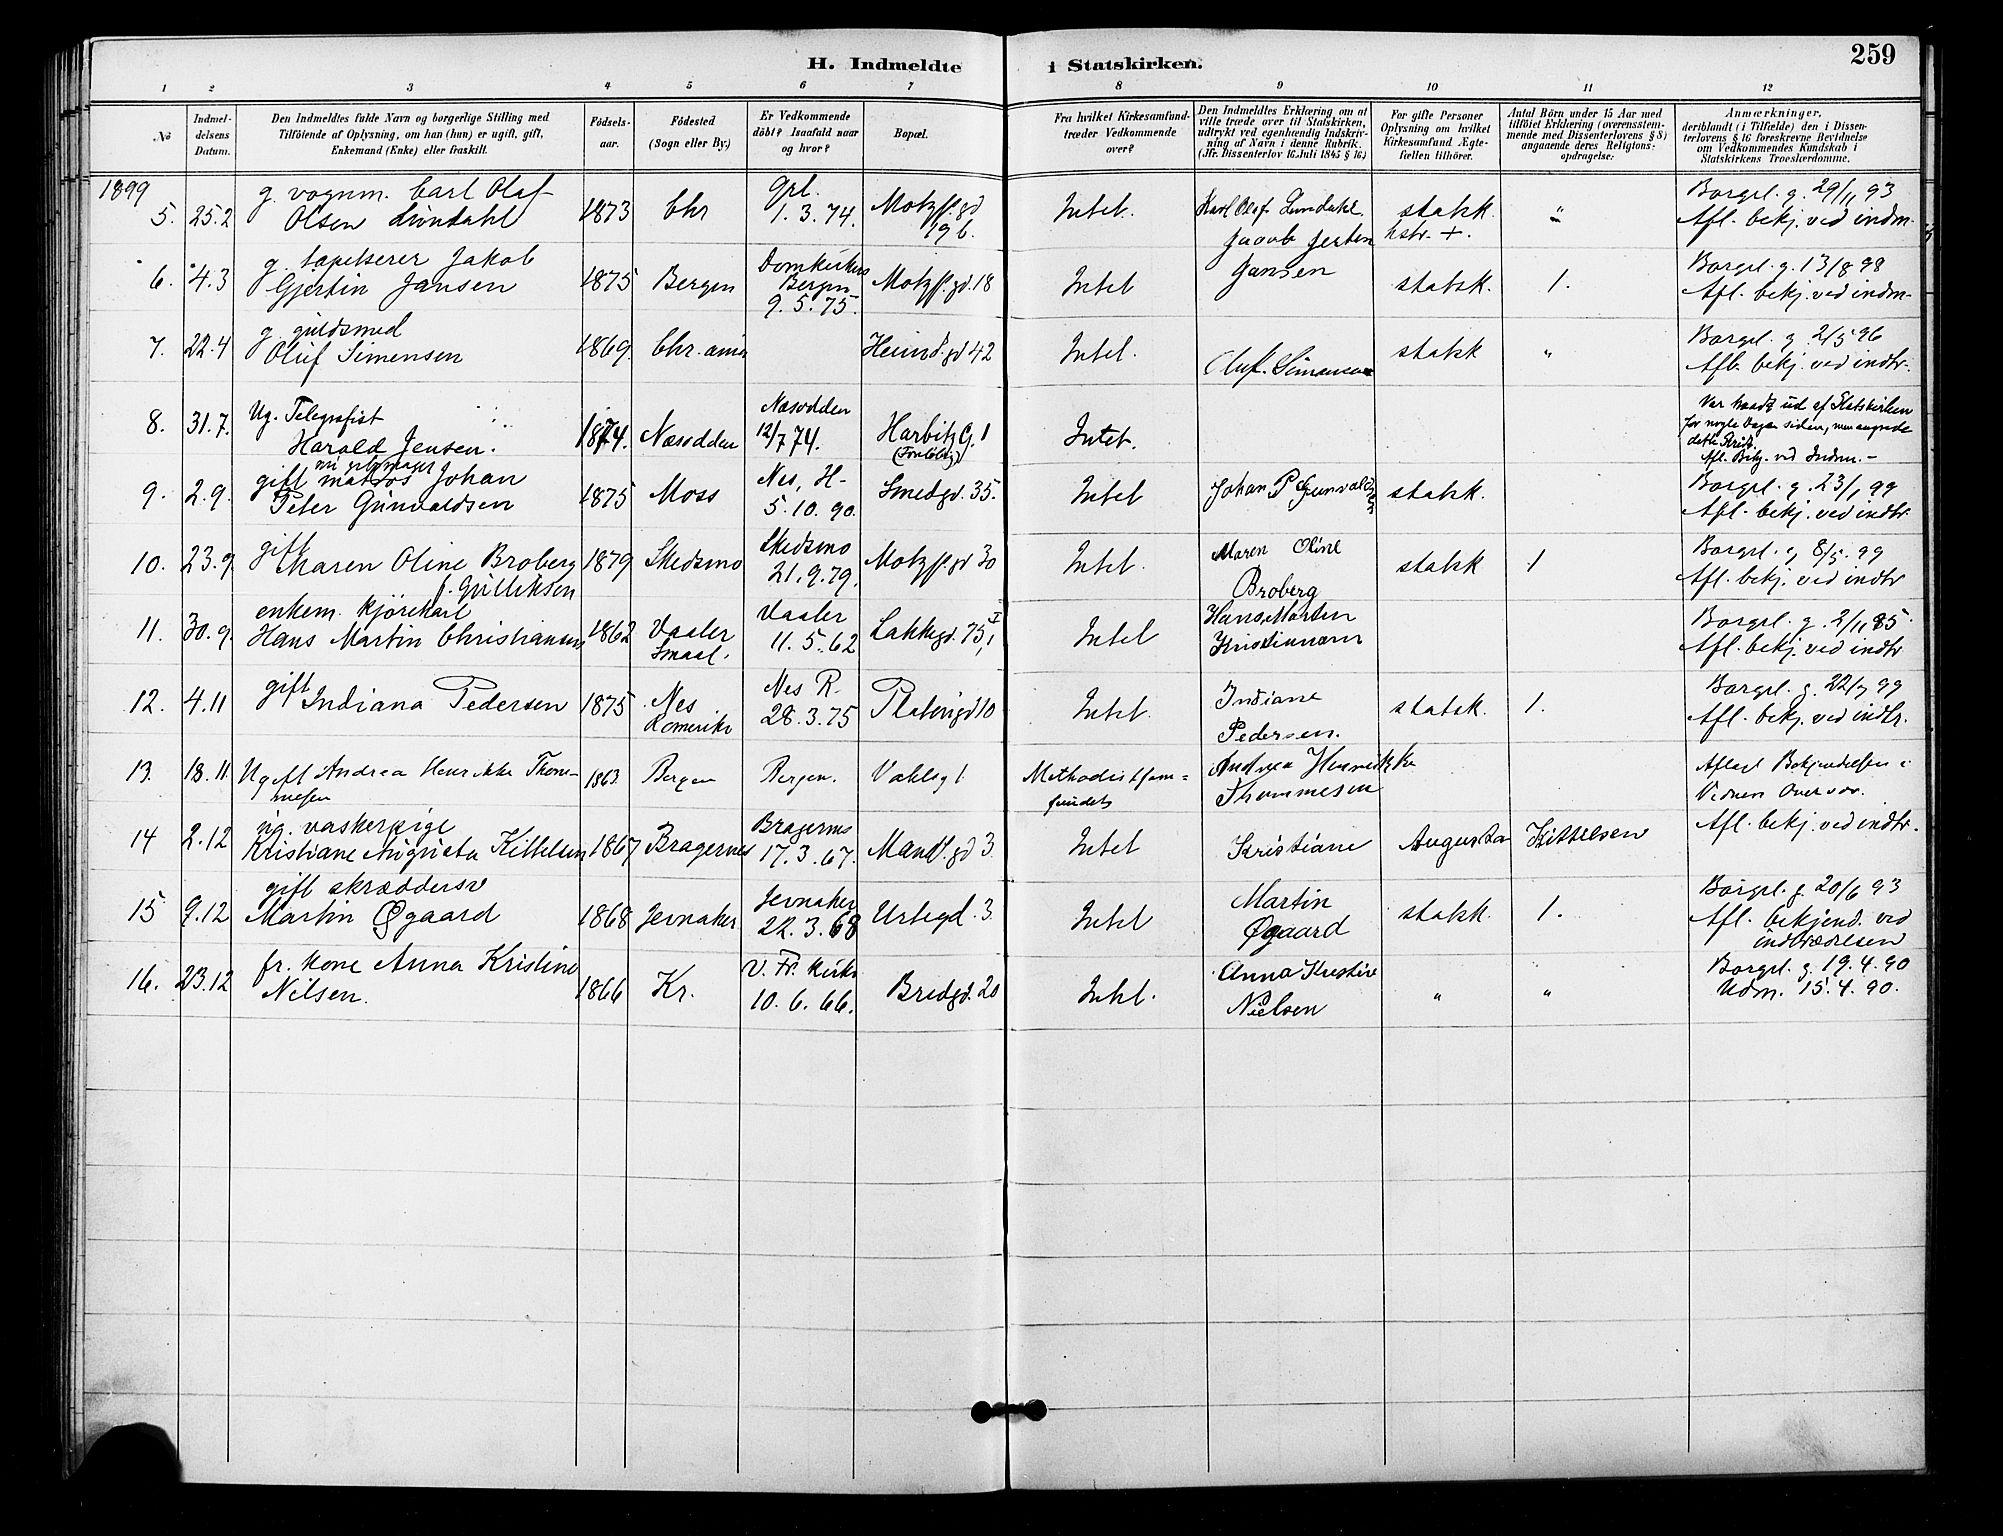 259
H. Indmeldte i Statskirken.
1 2 3 4 5 6 7 8 9 10 11 12
No
Indmel-
delsens
Datum.
Den Indmeldtes fulde Navn og borgerlige Stilling med
Tilföiende af Oplysning, om han (hun) er ugift, gift,
Enkemand (Enke) eller fraskilt.
Födsels-
aar.
Födested
(Sogn eller By.)
Er Vedkommende
döbt? Isaafald naar
og hvor?
Bopæl.
Fra hvilket Kirkesamfund
træder Vedkommende
over?
Den Indmeldtes Erklæring om at
ville træde over til Statskirken,
udtrykt ved egenhændig Indskriv-
ning af Navn i denne Rubrik.
(Jfr. Dissenterlov 16. Juli 1845 § 16.)
For gifte Personer
Oplysning om hvilket
Kirkesamfund Ægte-
fællen tilhörer.
Antal Börn under 15 Aar med
tilföiet Erklæring (overensstem-
mende med Dissenterlovens § 8)
angaaende deres Religions-
opdragelse:
Anmærkninger,
deriblandt (i Tilfælde) den i Dissen-
terlovens § 16 foreskrevne Bevidnelse
om Vedkommendes Kundskab i
Statskirkens Troeslærdomme.
1899
5. 25.2
g. vognm. Carl Olaf
Olsen Lundahl
1873 Chr
Grl.
1. 3. 74.
Motzf. gd
19 b.
Intet.
Karl Olaf Lundahl.
statsk.
hstr. +.
"
Borgrl. g. 29/11 93
Afl. bekj. ved indm.
6. 4.3
g. tapetserer Jakob
Gjertin Jansen
1875 Bergen
Domkirken
Bergen
9. 5. 75.
Motzf. gd. 18
Intet
Jacob Jertin
Jansen
statsk. 1.
Borgrl. g. 13/8 98
Afl. bekj. ved indm.
7. 22.4
g. guldsmed
Oluf Simensen
1869. Chr.ania
Heimd. gd 42
Intet.
Oluf. Simensen
statsk "
Borgrl. g. 2/5 96
Afl. bekj. ved indtr.
8. 31.7.
Ug. Telegrafist
Harald Jensen.
1874. Næsodden
Næsodden
12/7 74.
Harbitz G. 1
(Foreløbig)
Intet.
Var traadt ud af Statskirken
for nogle Dage siden, men angrede
dette Skridt.
Afl. Bekj. ved Indm. -
9. 2.9.
gift matros Johan
Peter Gunvaldsen
1875 Moss
Nes, H-
5. 10. 90.
Smedgd. 35.
Intet
Johan P Gunvaldsen
statsk.
Borgrl. g. 23/1 99
Afl. bekj. ved indtr.
10. 23.9
gift
Maren Oline Broberg
f. Gulliksen
1879 Skedsmo
Skedsmo
21. 9. 79.
Motzf. gd 30
Intet.
Maren Oline
Broberg
statsk 1
Borgrl. g 8/5. 99
Afl. bekj. ved indtr
11. 30.9.
enkem. kjörekarl
Hans Martin Christiansen
1862
Vaaler
Smaal.
Vaaler
11. 5. 62
Lakkegd. 75, I
Intet
Hans Marten
Kristiansen
Borgrl. g. 2/11 85.
Afl. bekj. ved indtr
12. 4.11
gift Indiana Pedersen
1875
Nes
Romerike
Nes R.
28. 3. 75
Platousgd 10
Intet.
Indiane
Pedersen.
statsk. 1.
Borgrl. g. 22/7 99
Afl. bekj. ved indtr.
13. 18.11.
Ugift Andrea Henrikke Thom-
mesen
1863 Bergen Bergen. Vahlsg 1
Methodistsam-
fundets
Andrea Henrikke
Thommesen
Aflagt Bekjendelsen i
Vidners Overvær.
14 2.12
ug. vaskerpige
Kristiane Augusta Kittelsen
1867 Bragernes
Bragernes
17. 3. 67.
Mandl. gd 3.
Intet
Kristiane Augusta Kittelsen
Afl. bekj. ved indtr.
15 9.12
gift skræddersv
Martin Øgaard
1868 Jevnaker
Jevnaker
22. 3. 68
Urtegd. 3.
Intet
Martin
Øgaard
statsk. 1.
Borgrl. g. 20/6 93
Afl. bekjend. ved
indtrædelsen
16. 23.12
fr. kone Anna Kristine
Nilsen.
1866 Kr.
V. Fr. kirke
10. 6. 66.
Bredgd. 20
Intet.
Anna Krestine
Nielsen
" "
Borgrl. g. 19. 4. 90
Udm. 15. 4. 90.